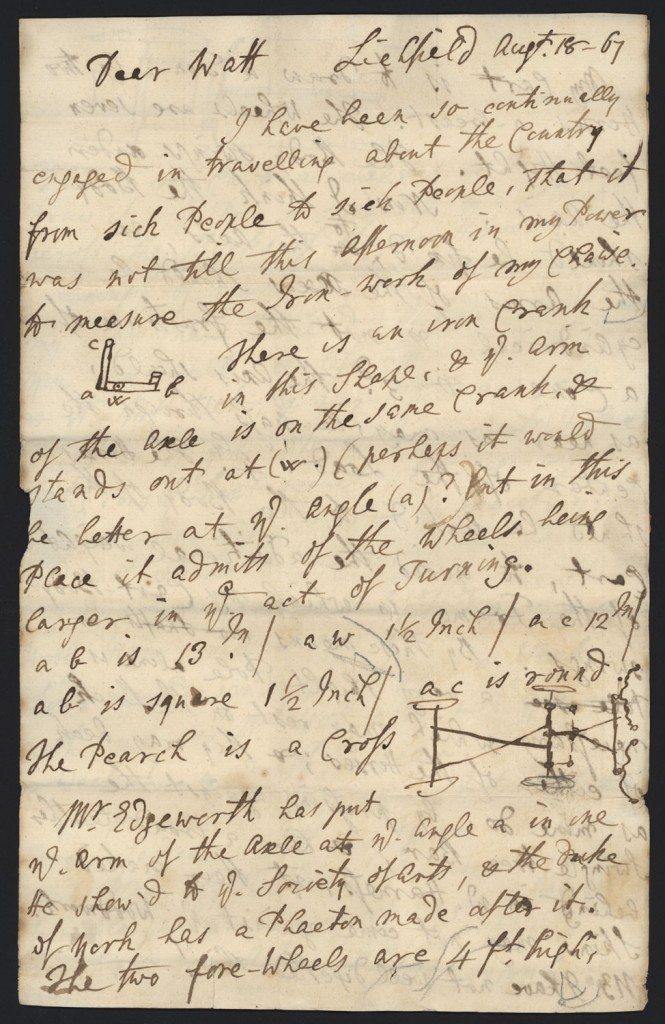 Dear Watt Lichfield Augt. 18-67
I have been so continually
engaged in travelling about the Country
from sick People to sick People, that it
was not till this afternoon in my Power
to measure the Iron-work of my Chaise.
There is an iron Crank
c
a w b in this Shape, & ye. arm
of the Axle is on the same Crank, &
stands out at (w.) (perhaps it would
be better at ye. angle (a)? but in this
Place it admits of the Wheels being
larger in ye. act of Turning.
a b is 13 In/ a w 1½ Inch/ a c 12 In/
a b is square 1½ Inch/ a c is round.
The Pearch is a Cross
Mr Edgeworth has put
ye. arm of the Axle at ye. angle a in one
He shew'd to ye. Society of Arts, & the Duke
of York has a Phaeton made after it.
The two fore-wheels are 4 ft. high,